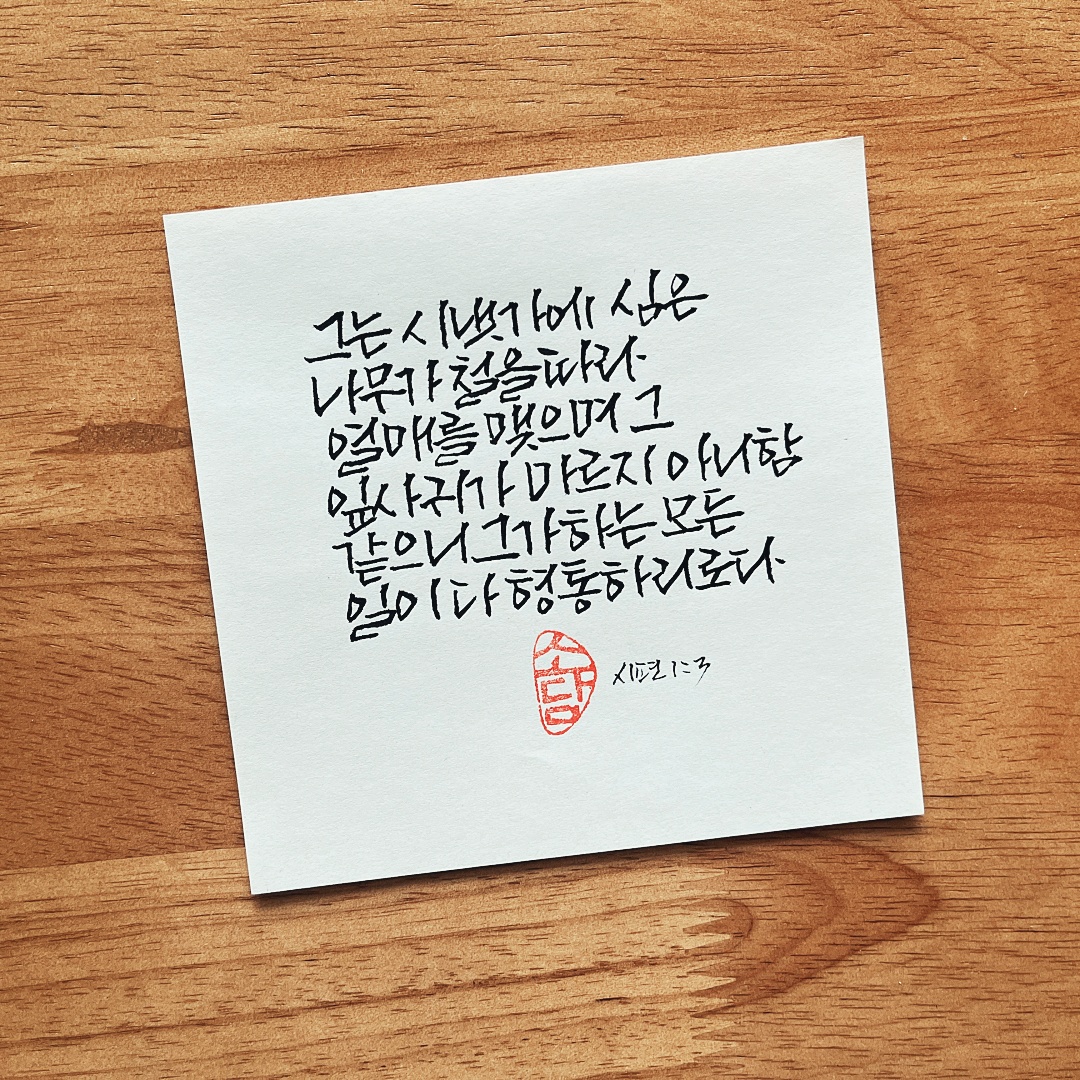 그는 시냇가에 심은
나무가 철을 따라
열매를 맺으며 그
잎사귀가 마르지 아니함
같으니 그가 하는 모든
일이 다 형통하리로다
소담
시편 1:3